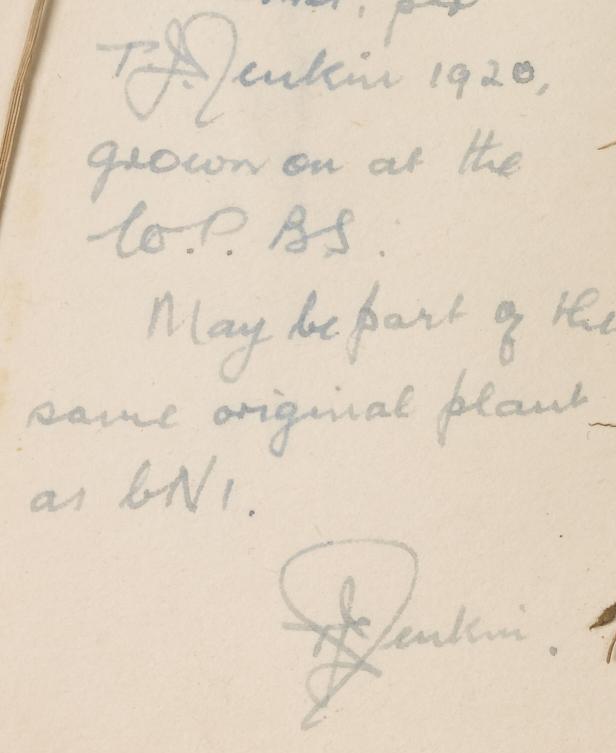 per
T. J. Jenkin 1920,
grown on at the
W.P. BS.
May be part of the
same original plant
as bN1.
T. J. Jenkin.